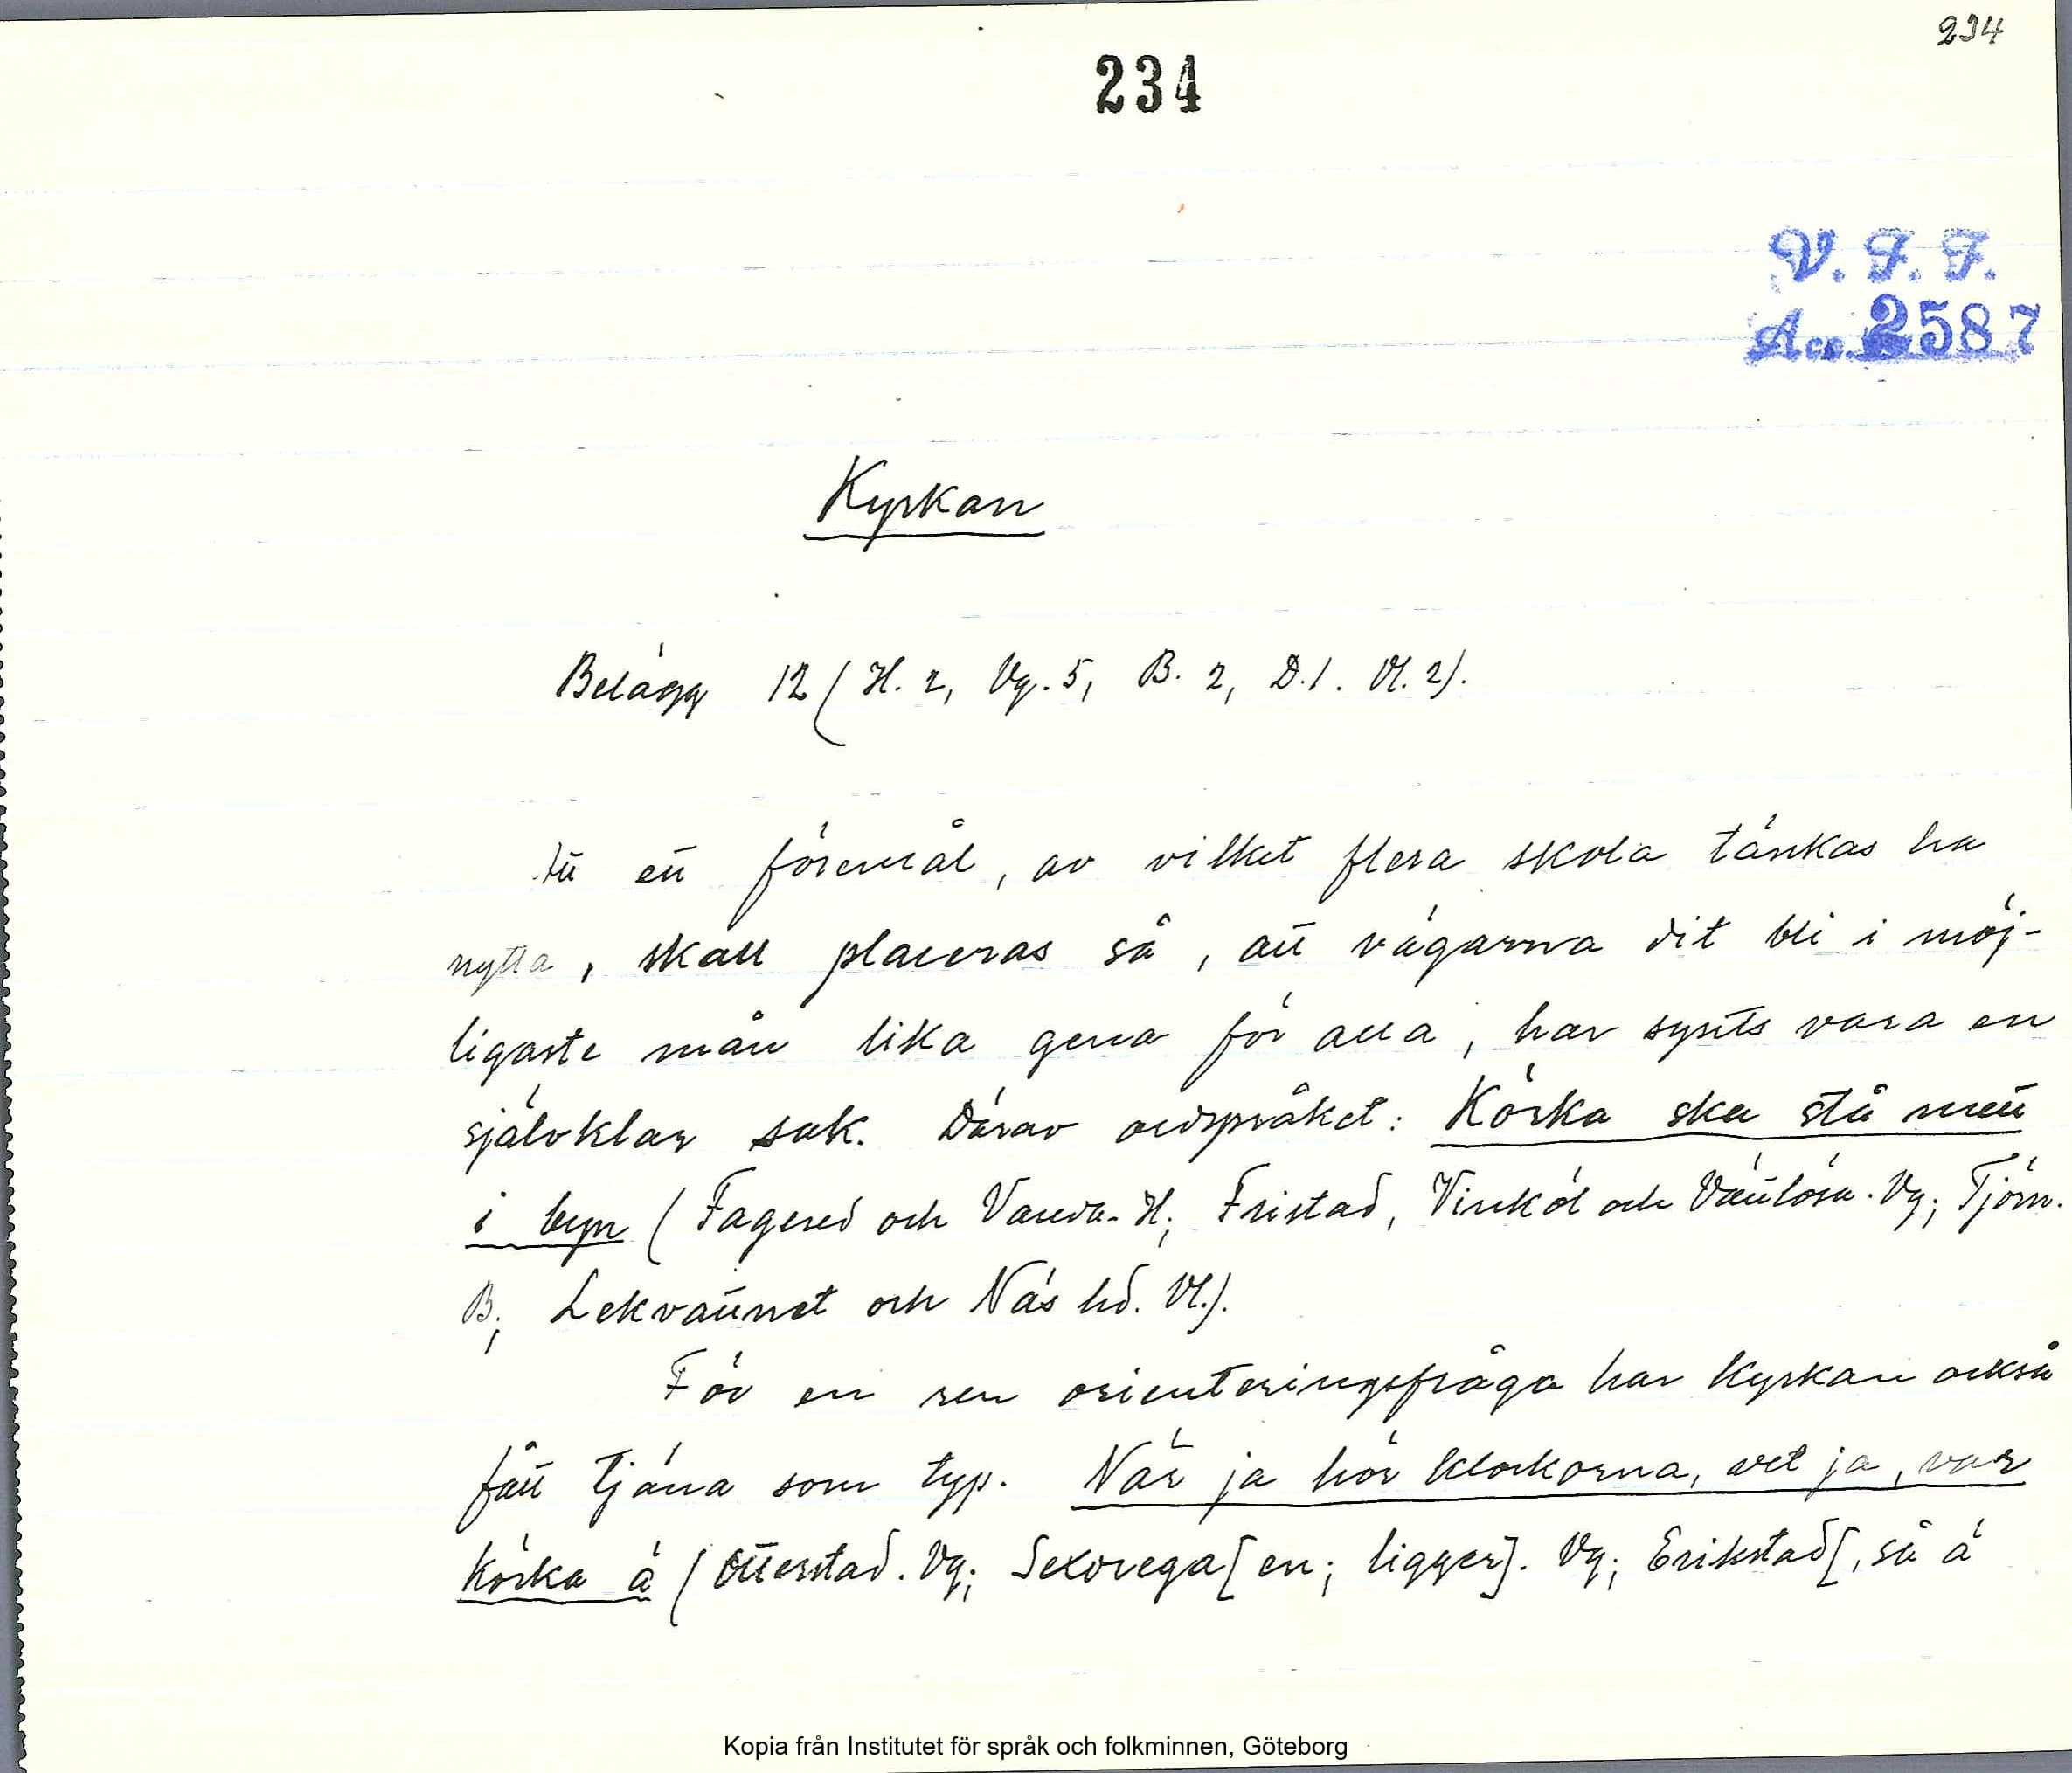 234
234
V. F. F.
Acc. 2587
Kyrkan
Belägg 12 (H. 2, Vg. 5, B. 2, D. 1. Vl. 2).
Att ett föremål, av vilket flera skola tänkas ha
nytta, skall placeras så, att vägarna dit bli i möj-
ligaste mån lika gena för alla, har synts vara en
självklar sak. Därav ordspråket: Körka ska stå mitt
i byn (Fagered och Vareda. H; Fristad, Vinköl och Väatlösa. Vg; Tjörn.
B; Lekvattnet och Näs hd. Vl.).
För en ren orienteringsfråga har kyrkan också
fått tjäna som typ. När ja hör klockorna, vet ja, var
körka ä (Otterstad. Vg; Sexdrega [en; ligger]. Vg; Erikstad [, så ä
Kopia från Institutet för språk och folkminnen, Göteborg